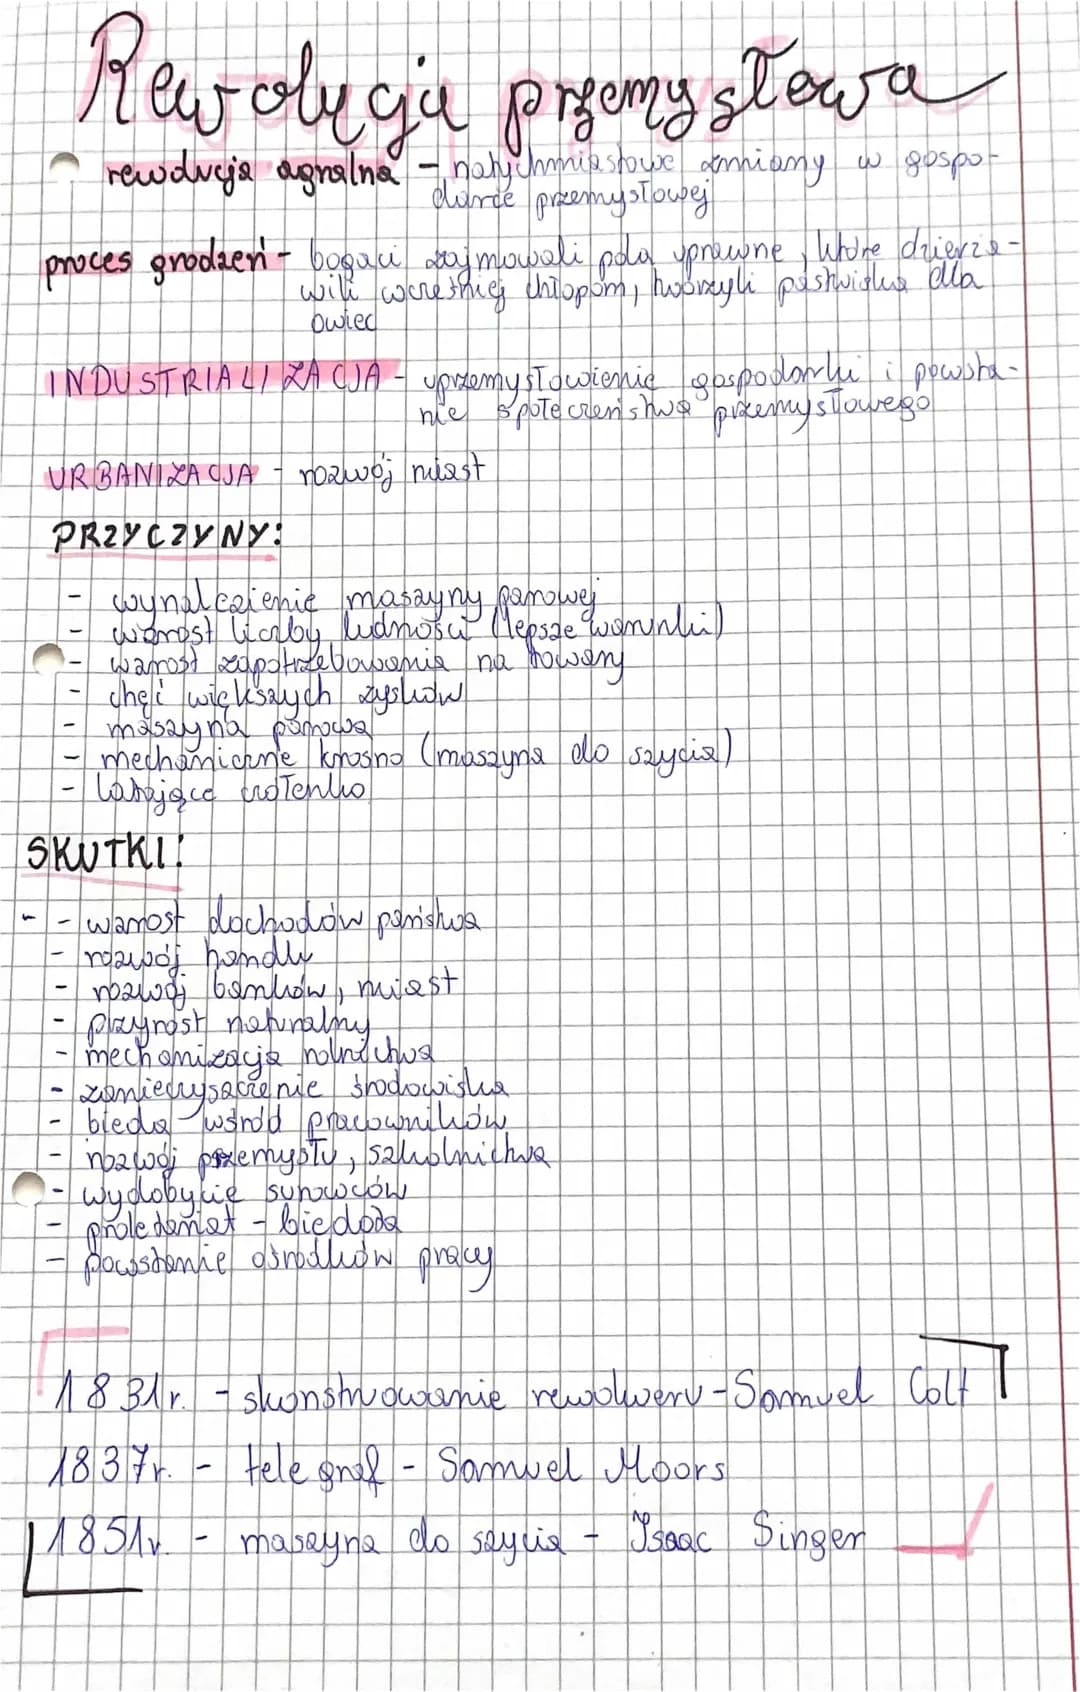 Rewolucja przemysłowa
rewolucja agralna - natychmiastowe zmiany w gospo-
darce przemysłowej
proces grodzeń - bogaci zajmowali pola uprawne, które dzierża-
wili wcześniej chłopom, tworzyli pastwiska dla
owiec
INDUSTRIALIZACJA - uprzemysłowienie gospodarki i powsta-
nie społeczeństwa przemysłowego
URBANIZACJA - rozwój miast
PRZYCZYNY:
- wynalezienie maszyny parowej
- wzrost liczby ludności (lepsze warunki)
- wzrost zapotrzebowania na towary
- chęć większych zysków
- maszyna parowa
- mechaniczne krosno (maszyna do szycia)
- latające czółenko
SKUTKI:
- - wzrost dochodów państwa
- rozwój handlu
- rozwój banków, miast
- przyrost naturalny
- mechanizacja rolnictwa
- zanieczyszczenie środowiska
- bieda wśród pracowników
- rozwój przemysłu, szkolnictwa
- wydobycie surowców
- proletariat - biedota
- powstanie ośrodków pracy
1831r. - skonstruowanie rewolweru - Samuel Colt
1837r. - telegraf - Samuel Moors
1851r. - maszyna do szycia - Isaac Singer